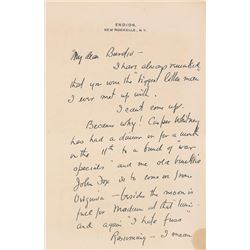 ENDION,
NEW ROCHELLE, N.Y.
My dear
I have always
that you were the "biggest little man
I ever met up with.
I can't come up.
Because why! Caspar Whitney
has had a dinner on for a week
on the 11th to a bunch of "war
specials" and me old
John Fox is to come on from
Virginia — besides the moon is
full for at that time
and again "I hate fuss"
— I mean